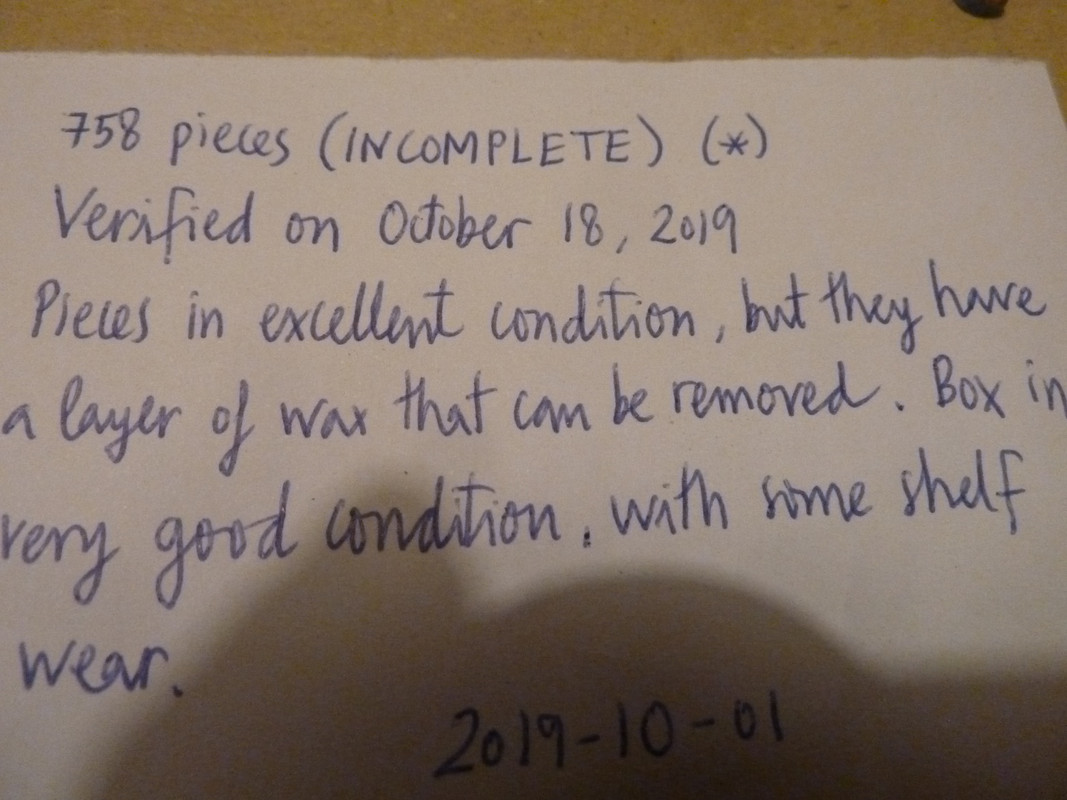 758 pieces (INCOMPLETE) (*)
Verified on October 18, 2019
Pieces in excellent condition, but they have
a layer of wax that can be removed. Box in
very good condition, with some shelf
wear.
2019-10-01